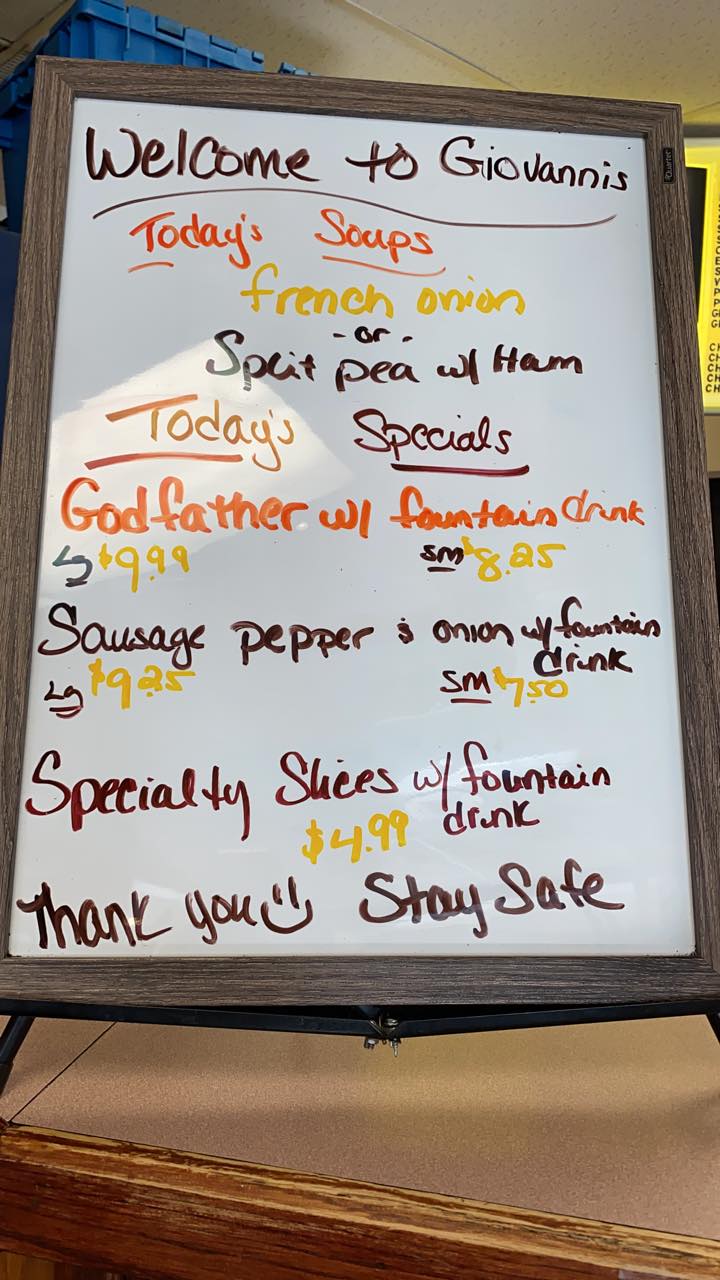 Welcome to Giovannis
Quartet
Today's Soups
french onion
- or -
Split pea w/ Ham
Today's Specials
Godfather w/ fountain drink
Lg $9.99 SM $8.25
Sausage pepper & onion w/ fountain
drink
Lg $9.25 SM $7.50
Specialty Slices w/ fountain
drink
$4.99
Thank you Stay Safe